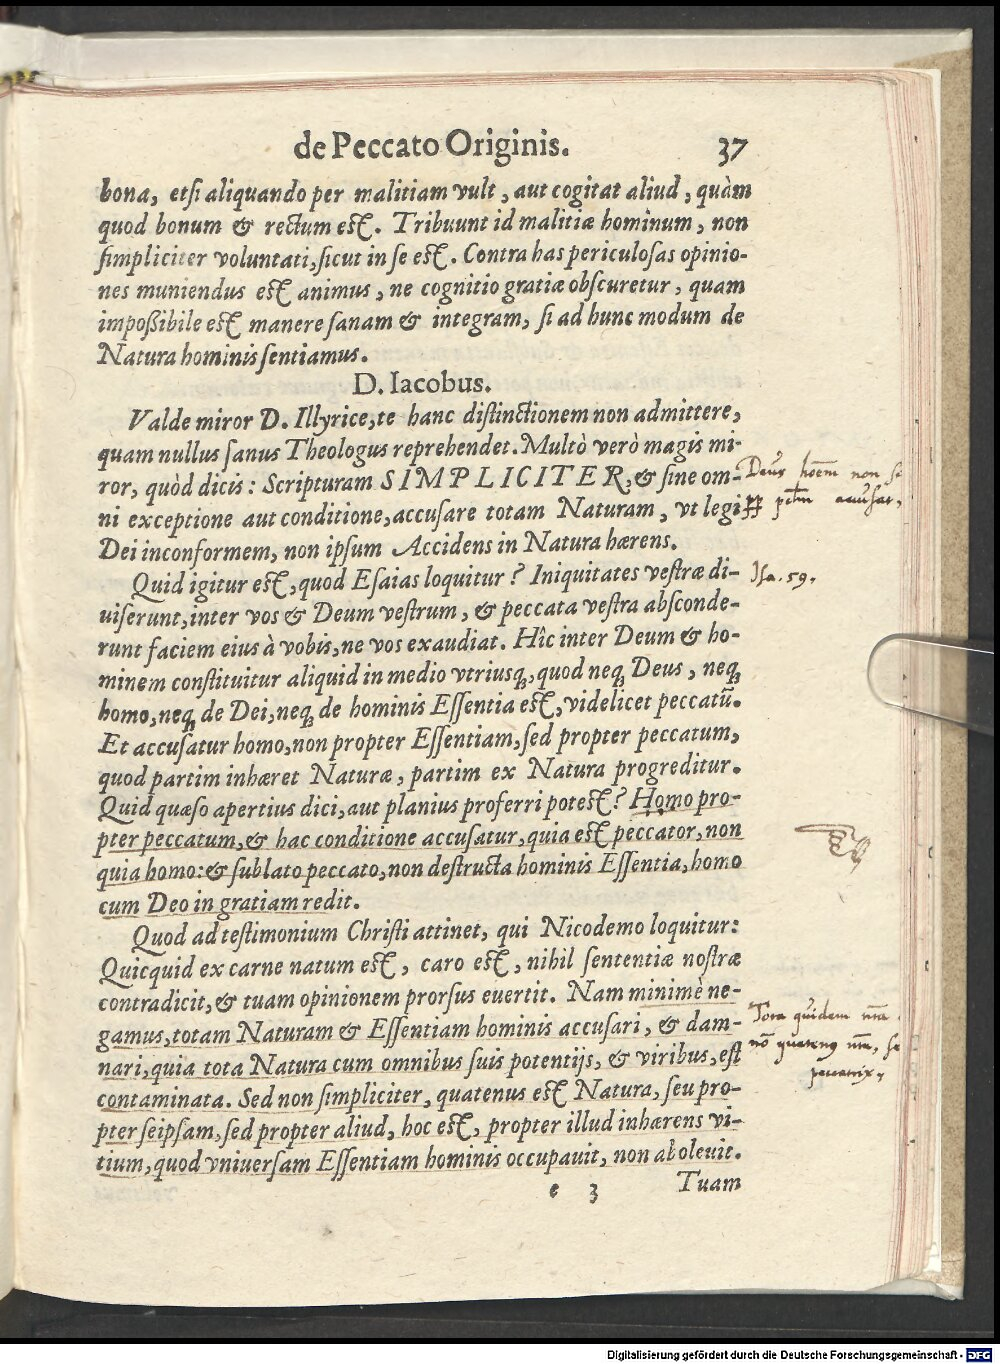 de Peccato Originis. 37
bona, etſi aliquando per malitiam vult, aut cogitat aliud, quàm
quod bonum & rectum eſt. Tribuunt id malitiæ hominum, non
ſimpliciter voluntati, ſicut in ſe eſt. Contra has periculoſas opinio-
nes muniendus eſt animus, ne cognitio gratiæ obſcuretur, quam
impoßibile eſt manere ſanam & integram, ſi ad hunc modum de
Natura hominis ſentiamus.
D. Iacobus.
Valde miror D. Illyrice, te hanc diſtinctionem non admittere,
quam nullus ſanus Theologus reprehendet. Multò verò magis mi-
ror, quòd dicis: Scripturam SIMPLICITER, & ſine om-
ni exceptione aut conditione, accuſare totam Naturam, vt legi
Dei inconformem, non ipſum Accidens in Natura hærens.
Deus hoēm non
Quid igitur eſt, quod Eſaias loquitur? Iniquitates veſtræ di-
Iſa. 59.
uiſerunt, inter vos & Deum veſtrum, & peccata veſtra abſconde-
runt faciem eius à vobis, ne vos exaudiat. Hîc inter Deum & ho-
minem conſtituitur aliquid in medio vtriusq́;, quod neq́; Deus, neq́;
homo, neq́; de Dei, neq́; de hominis Eſſentia eſt, videlicet peccatū.
Et accuſatur homo, non propter Eſſentiam, ſed propter peccatum,
quod partim inhæret Naturæ, partim ex Natura progreditur.
Quid quæſo apertius dici, aut planius proferri poteſt? Homo pro-
pter peccatum, & hac conditione accuſatur, quia eſt peccator, non
quia homo: & ſublato peccato, non deſtructa hominis Eſſentia, homo
cum Deo in gratiam redit.
Quod ad teſtimonium Chriſti attinet, qui Nicodemo loquitur:
Quicquid ex carne natum eſt, caro eſt, nihil ſententiæ noſtræ
contradicit, & tuam opinionem prorſus euertit. Nam minimè ne-
gamus, totam Naturam & Eſſentiam hominis accuſari, & dam-
nari, quia tota Natura cum omnibus ſuis potentijs, & viribus, eſt
contaminata. Sed non ſimpliciter, quatenus eſt Natura, ſeu pro-
pter ſeipſam, ſed propter aliud, hoc eſt, propter illud inhærens vi-
tium, quod vniuerſam Eſſentiam hominis occupauit, non aboleuit.
quidem
peccatrix
e 3 Tuam
Digitalisierung gefördert durch die Deutsche Forschungsgemeinschaft - DFG